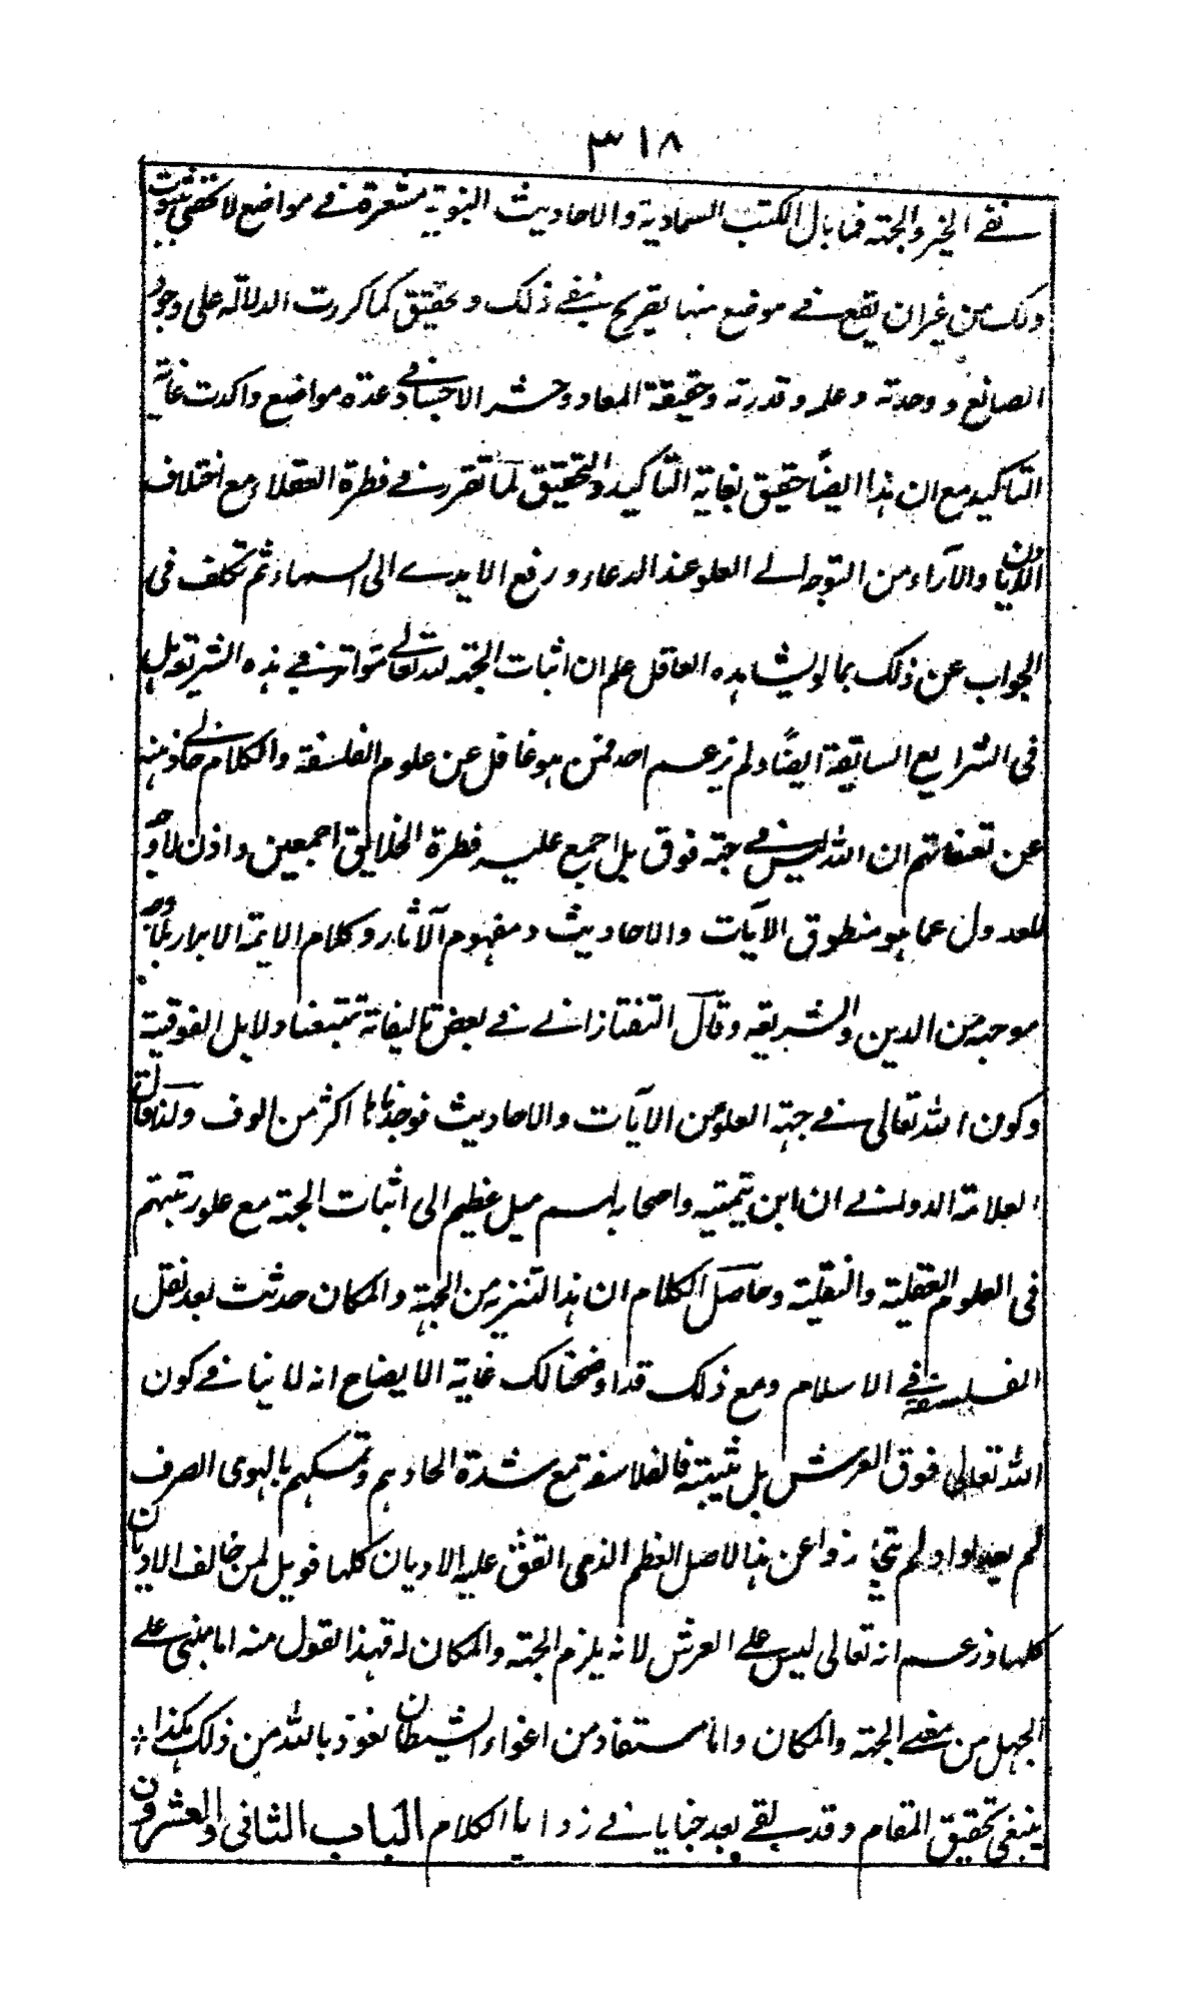 ٣١٨
نفى الحيز والجهة فما بال الكتب السماوية والاحاديث النبوية مشعرة فى مواضع لا تحصى بثبوت
ذلك من غير ان يقع فى موضع منها تصريح بنفى ذلك وتحقيق كما كررت الدلالة على وجود
الصانع ووحدته وعلمه وقدرته وحقيقة المعاد وحشر الاجساد فى عدة مواضع واكدت غاية
التاكيد مع ان هذا ايضاً حقيق بغاية التاكيد والتحقيق لما تقرر فى فطرة العقلاء مع اختلاف
الاديان والآراء من التوجه الى العلو عند الدعاء ورفع الايدى الى السماء ثم تكلف فى
الجواب عن ذلك بما لو يشاهده العاقل علم ان اثبات الجهة لله تعالى متواتر فى هذه الشريعة بل
فى الشرايع السابقة ايضًا ولم يزعم احد ممن هو غافل عن علوم الفلسفة والكلام
عن تعمقاتهم ان الله ليس فى جهة فوق بل اجمع عليه فطرة الخلائق اجمعين واذن لا وجه
للعدول عما هو منطوق الآيات والاحاديث ومفهوم الآثار وكلام الائمة الابرار بلا
موجبه من الدين والشريعه وقال التفتازانى فى بعض تاليفاته تتبعنا دلايل الفوقية
وكون الله تعالى فى جهة العلو من الآيات والاحاديث فوجدناها اكثر من الوف ولذا قال
العلامة الدوانى ان ابن تيمية واصحابه لهم ميل عظيم الى اثبات الجهة مع علو رتبتهم
فى العلوم العقلية والنقلية وحاصل الكلام ان هذا التنزيه من الجهة والمكان حدثت بعد نقل
الفلسفة فى الاسلام ومع ذلك قد اوضحنا لك غاية الايضاح انه لا ينافى كون
الله تعالى فوق العرش بل تثبيته فالفلاسفة مع شدة الحادهم وتمسكهم بالهوى الصرف
لم يعدلوا ولم يتجاوزوا عن هذا الاصل العظم الذى اتفق عليه الاديان كلها فويل لمن خالف الاديان
كلها وزعم انه تعالى ليس على العرش لانه يلزم الجهة والمكان له فهذا القول منه اما مبنى على
الجهل من معنى الجهة والمكان واما مستفاد من اغواء الشيطان نعوذ بالله من ذلك هكذا
ينبغى تحقيق المقام وقد بقى بعد خبايا فى زوايا الكلام الباب الثانى والعشرون